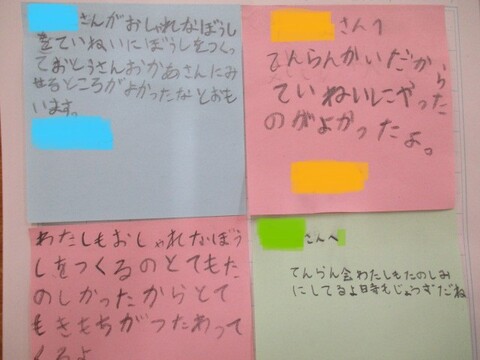 さんがおしゃれなぼうし
をていねいにぼうしをつくっ
ておとうさんおかあさんにみ
せるところがよかったなとおも
います。
さんへ
てんらんかいだから
ていねいにやった
のがよかったよ。
わたしもおしゃれなぼう
しをつくるのとてもた
のしかったからとて
もきもちがつたわって
くるよ
さんへ
てんらん会わたしもたのしみ
にしてるよ 時もじょうずだね